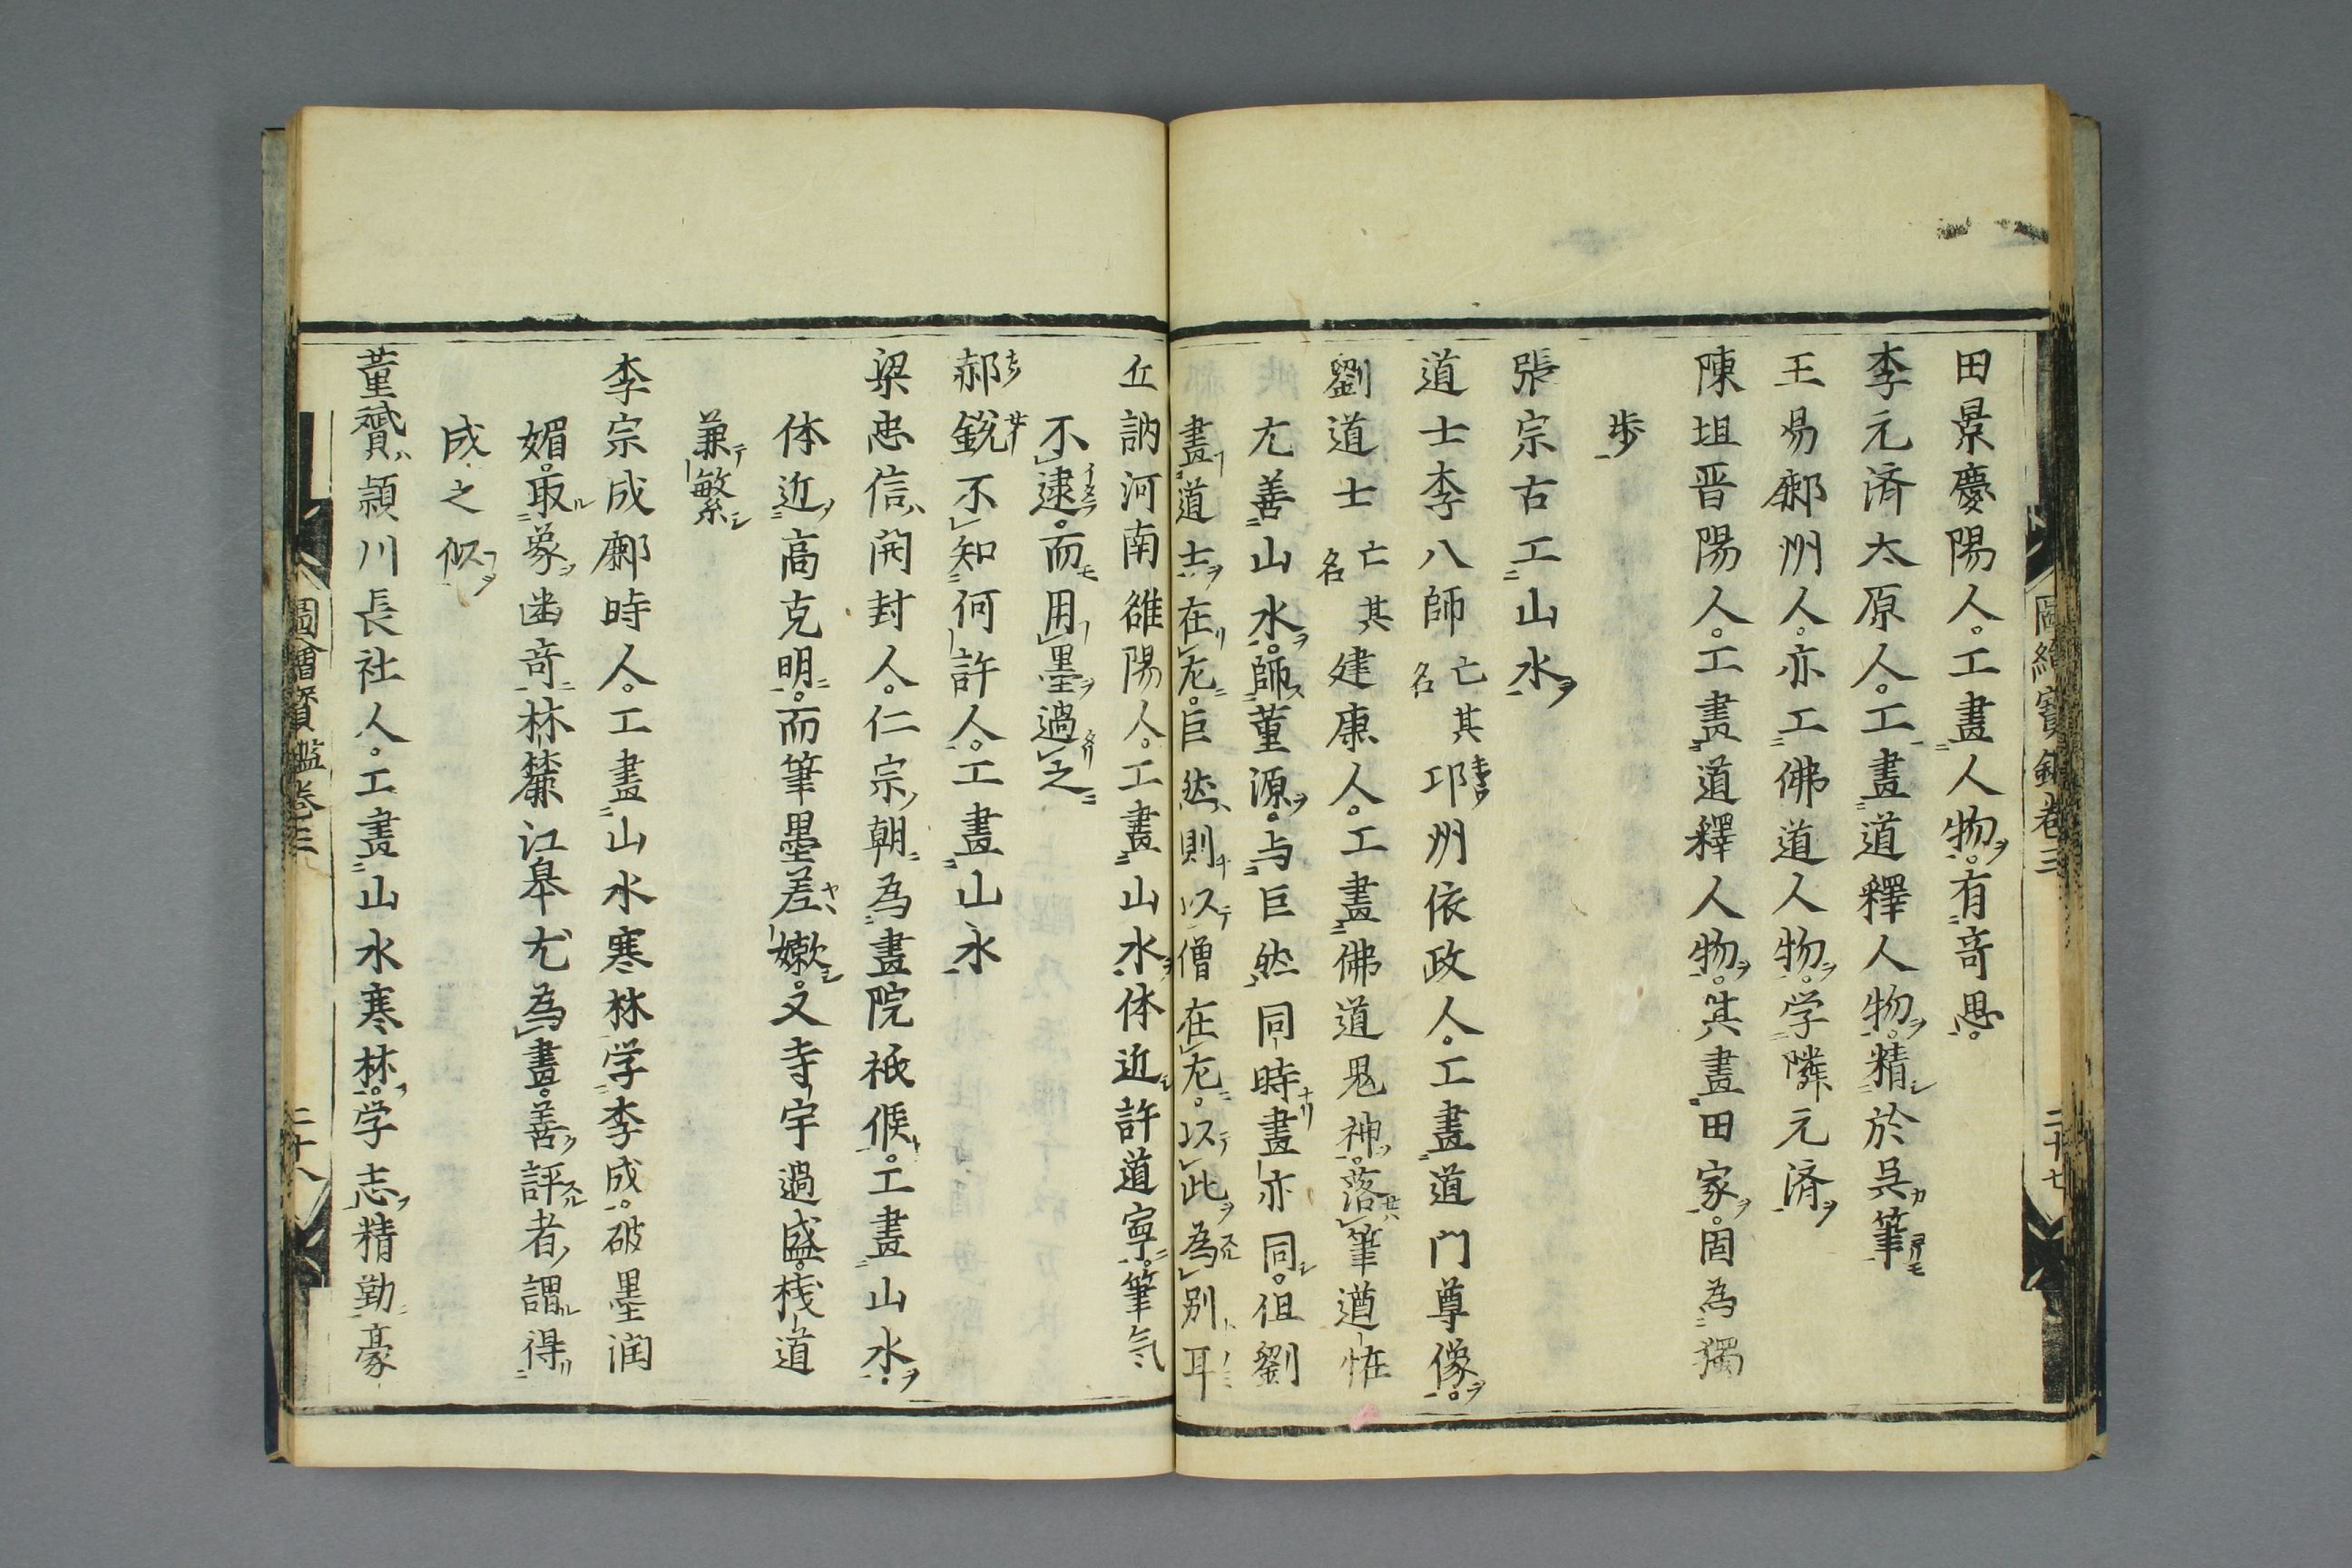 圖繪寶鑑卷三 二十七
田景慶陽人。工畫人物。有奇思。
李元済太原人。工畫道釋人物。精於呉筆
王易鄜州人。亦工佛道人物。学隣元済
陳坦晋陽人。工畫道釋人物。其畫田家。固為獨
歩
張宗古工山水
道士李八師亡其名邛州依政人。工畫道門尊像。
劉道士亡其名建康人。工畫佛道鬼神。落筆遒恠
尤善山水。師董源。与巨然同時畫亦同。但劉
畫道士在左。巨然則以僧在左。以此為別耳
丘訥河南雒陽人。工畫山水体近許道寧。筆気
不逮。而用墨過之
郝銳不知何許人。工畫山水
梁忠信開封人。仁宗朝為畫院祗候。工畫山水。
体近高克明。而筆墨差嫰。又寺宇過盛。栈道
兼繁
李宗成鄜時人。工畫山水寒林学李成。破墨润
媚。取象幽奇林麓江皋尤為畫。善評者謂得
成之似
董贇頴川長社人。工畫山水寒林。学志精勤豪
圖繪寳鑑卷三 二十八